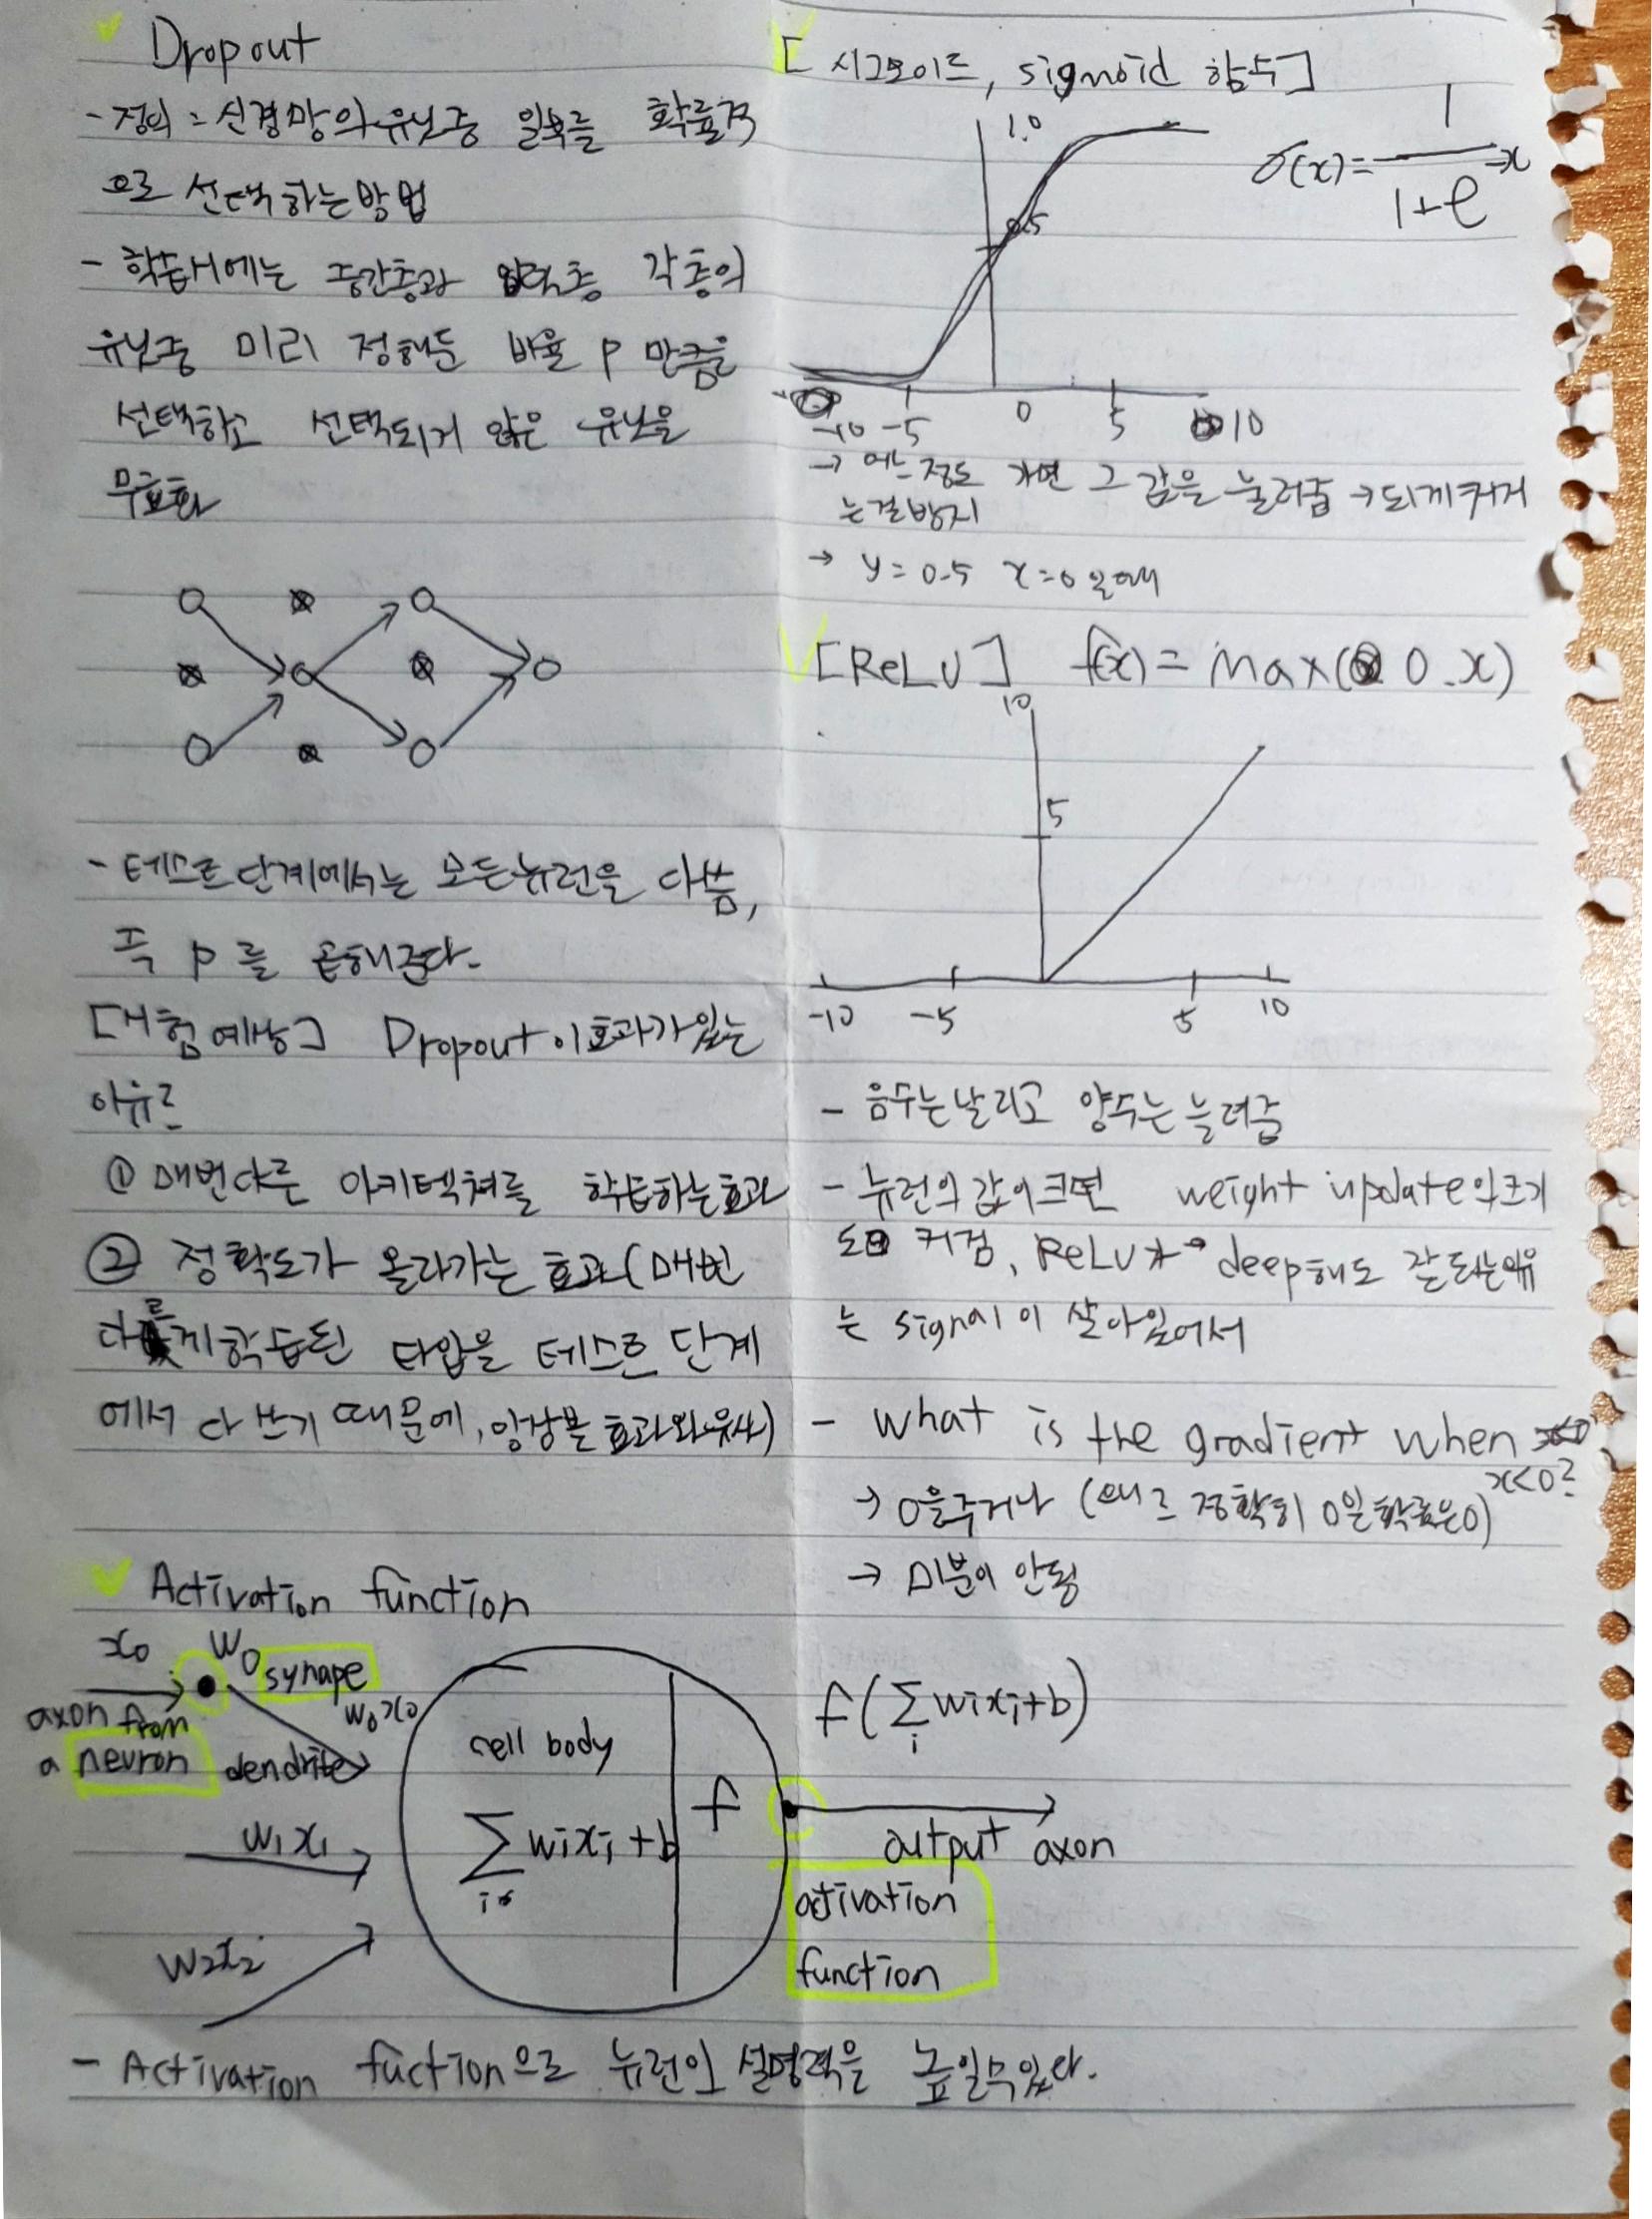 Dropout
- 정의 = 신경망의 유닛중 일부를 확률적
으로 선택하는 방법
- 학습시에는 중간층과 입력층 각 층의
유닛중 미리 정해둔 비율 p 만큼을
선택하고 선택되지 않은 유닛을
무효화
- 테스트 단계에서는 모든 뉴런을 다 씀,
즉 p를 곱해준다.
[시험 예상] Dropout이 효과가 있는
이유?
① 매번 다른 아키텍쳐를 학습하는 효과
② 정확도가 올라가는 효과 (매번
다르게 학습된 타입을 테스트 단계
에서 다 쓰기 때문에, 앙상블 효과와 유사)
[시그모이드, sigmoid 함수]
σ(x) = 1 / 1+e^-x
1.0
0.5
-10 -5 0 5 10
→ 어느 정도 가면 그 값을 눌러줌 → 되게 커지
는걸 방지
→ y = 0.5 x = 0 일 때
[ReLU] f(x) = max(0.x)
10
5
-10 -5 5 10
- 음수는 날리고 양수는 늘려줌
- 뉴런의 값이 크면 weight update의 크기
도 커짐, ReLU가 deep해도 잘 되는 이유
는 signal이 살아있어서
- what is the gradient when
x<0?
→ 0을 주거나 (왜? 정확히 0일 확률은 0)
→ 미분이 안됨
Activation function
x0 W0 synape
axon from
a neuron dendrite
w0x0
w1x1
w2x2
cell body
∑ wixi + b
i
f
f(∑ wixi+b)
i
output axon
activation
function
- Activation fuction으로 뉴런의 설명력을 높일 수 있다.